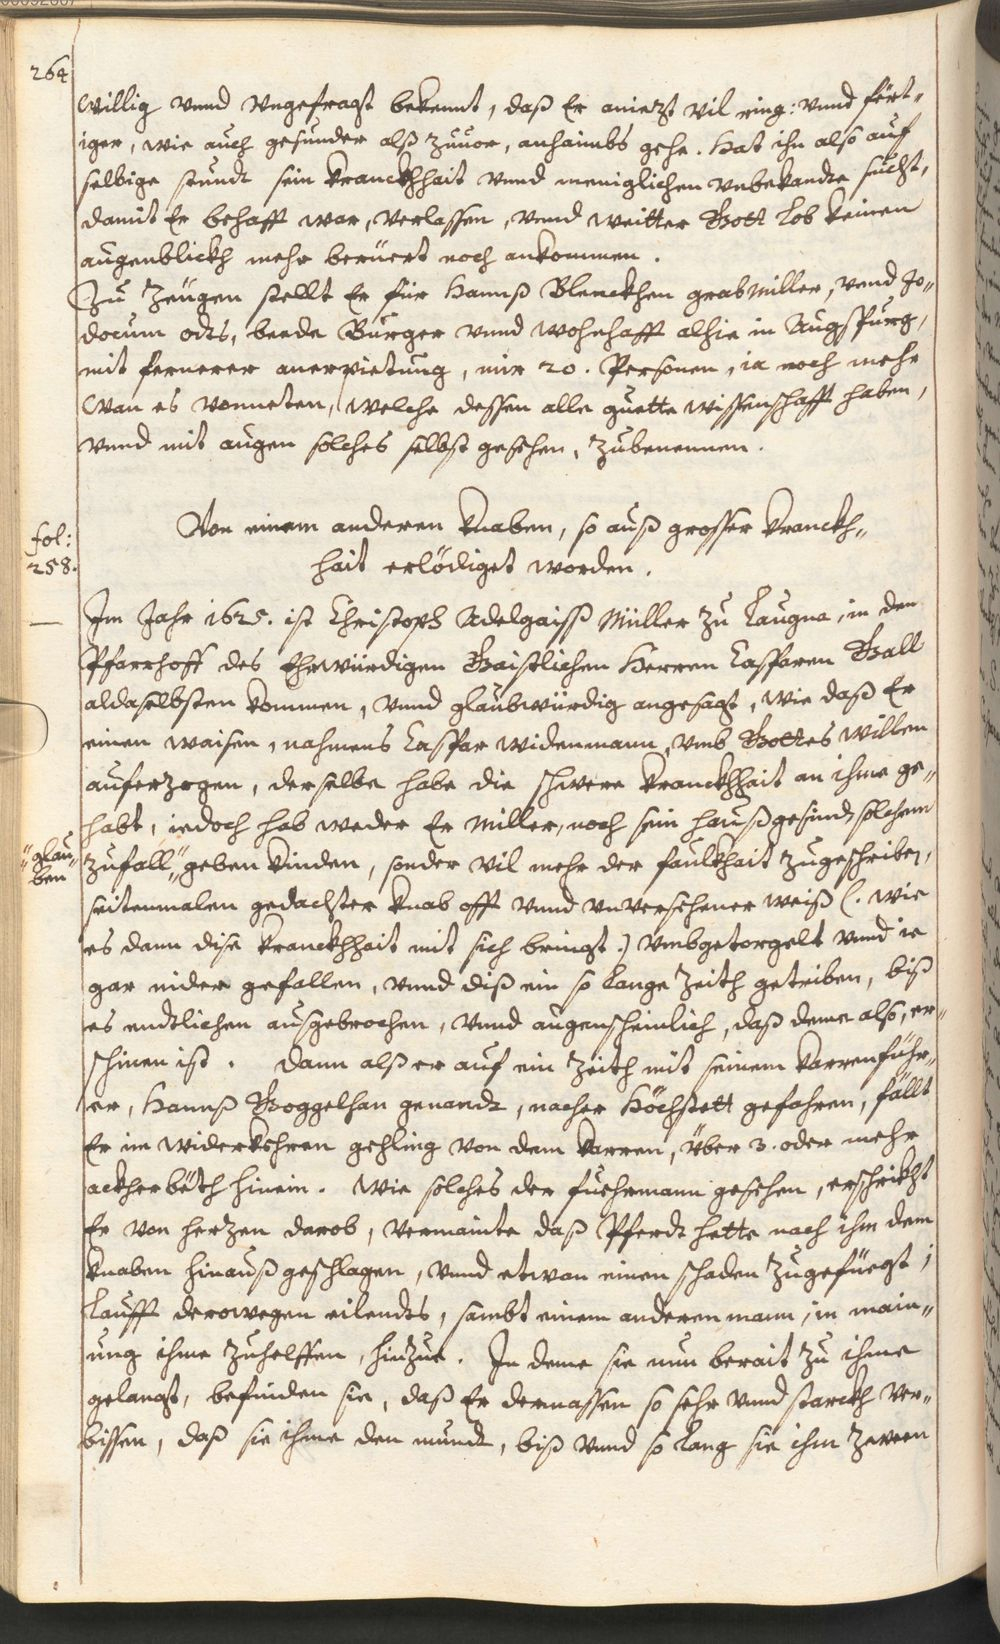 264
willig vnnd vngefragt bekennt, daß Er aniezt vil ring: vnnd fört„
iger, wie auch gesunder alß zuuor, anhaimbs gehe. Hat ihn also auf
selbige stundt sein kranckhhait vnnd meniglichen vnbekandte sucht,
damit Er behafft war, verlassen, vnnd weitter Gott lob keinen
augenblickh mehr berüert noch ankommen.
Zu Zeugen stellt Er für Hannß Blenckhen grabmiller, vnnd Jo„
docum orts, beede Burger vnnd wohnhafft alhie in Augspurg,
mit fernerer anerpietung, mir 20. Personen, ia noch mehr
wan es vonneten, welche dessen alle guette wissenschafft haben,
vnnd mit augen solches selbst gesehen, zubenennen.
Von einem anderen knaben, so auß grosser kranckh„
hait erlödiget worden.
fol:
258.
Im Jahr 1625. ist Christoph Adelgaiß Müller zu Laugna, in den
Pfarrhoff des Ehrwürdigen Gaistlichen Herren Casparen Gall
aldaselbsten kommen, vnnd glaubwürdig angesagt, wie daß Er
einen waisen, nahmens Caspar widenmann, vmb Gottes willen
auferzogen, derselbe habe die schwere kranckhhait an ihme ge„
habt, iedoch hab weder Er Miller, noch sein haußgesindt solchem
"glau„
ben
zufall" geben kinden, sonder vil mehr der faulkhait zugeschriben,
seitenmalen gedachter knab offt vnnd vnversehener weiß (. wie
es dann dise kranckhhait mit sich bringt.) vmbgetorgelt vnnd ie
gar nider gefallen, vnnd diß ein so lange Zeith getriben, biß
es endtlichen ausgebrochen, vnnd augenscheinlich, daß deme also, er„
schinen ist. Dann alß er auf ein Zeith mit seinem karrenführ„
er, Hannß Goggelhan genandt, nacher Höchstett gefahren, fällt
Er im widerkehren gehling von dem karren, über 3. oder mehr
ackherböth hinein. Wie solches der fuehrmann gesehen, erschrikht
Er von herzen darob, vermainte daß Pferdt hette nach ihm dem
knaben hinauß geschlagen, vnnd etwan einen schaden zugefüegt;
Laufft derowegen eilendts, sambt einem anderen mann, in main„
ung ihme zuhelffen, hinzue. In deme sie nun berait zu ihme
gelangt, befinden sie, daß Er dermassen so sehr vnnd starckh ver„
bissen, daß sie ihme den mundt, biß vnnd so lang sie ihm zween